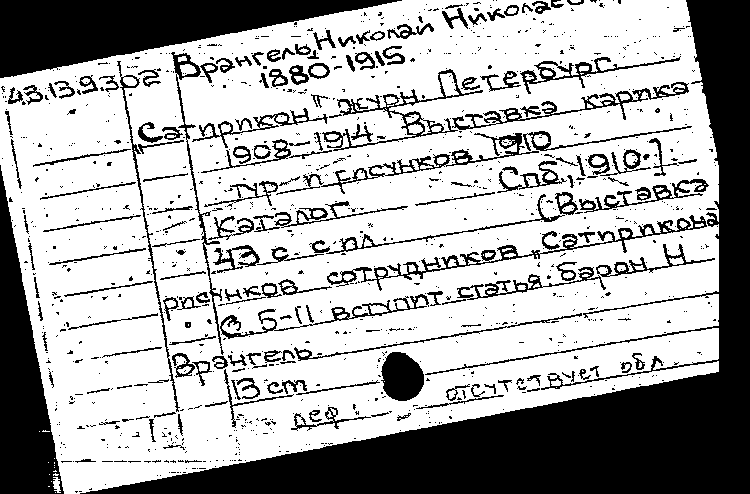 43.13.9.302 Врангель, Николай Николаевич
1880-1915.
„Сатирикон", журн. Петербург.
1908-1914. Выставка карика
тур и рисунков. 1910
Каталог. Спб, 1910.]
43 с. с пл. (Выставка
рисунков сотрудников „Сатирикона"
С. 5-11 вступит. статья: барон Н.
Врангель.
13 cm.
деф: отсутствует обл